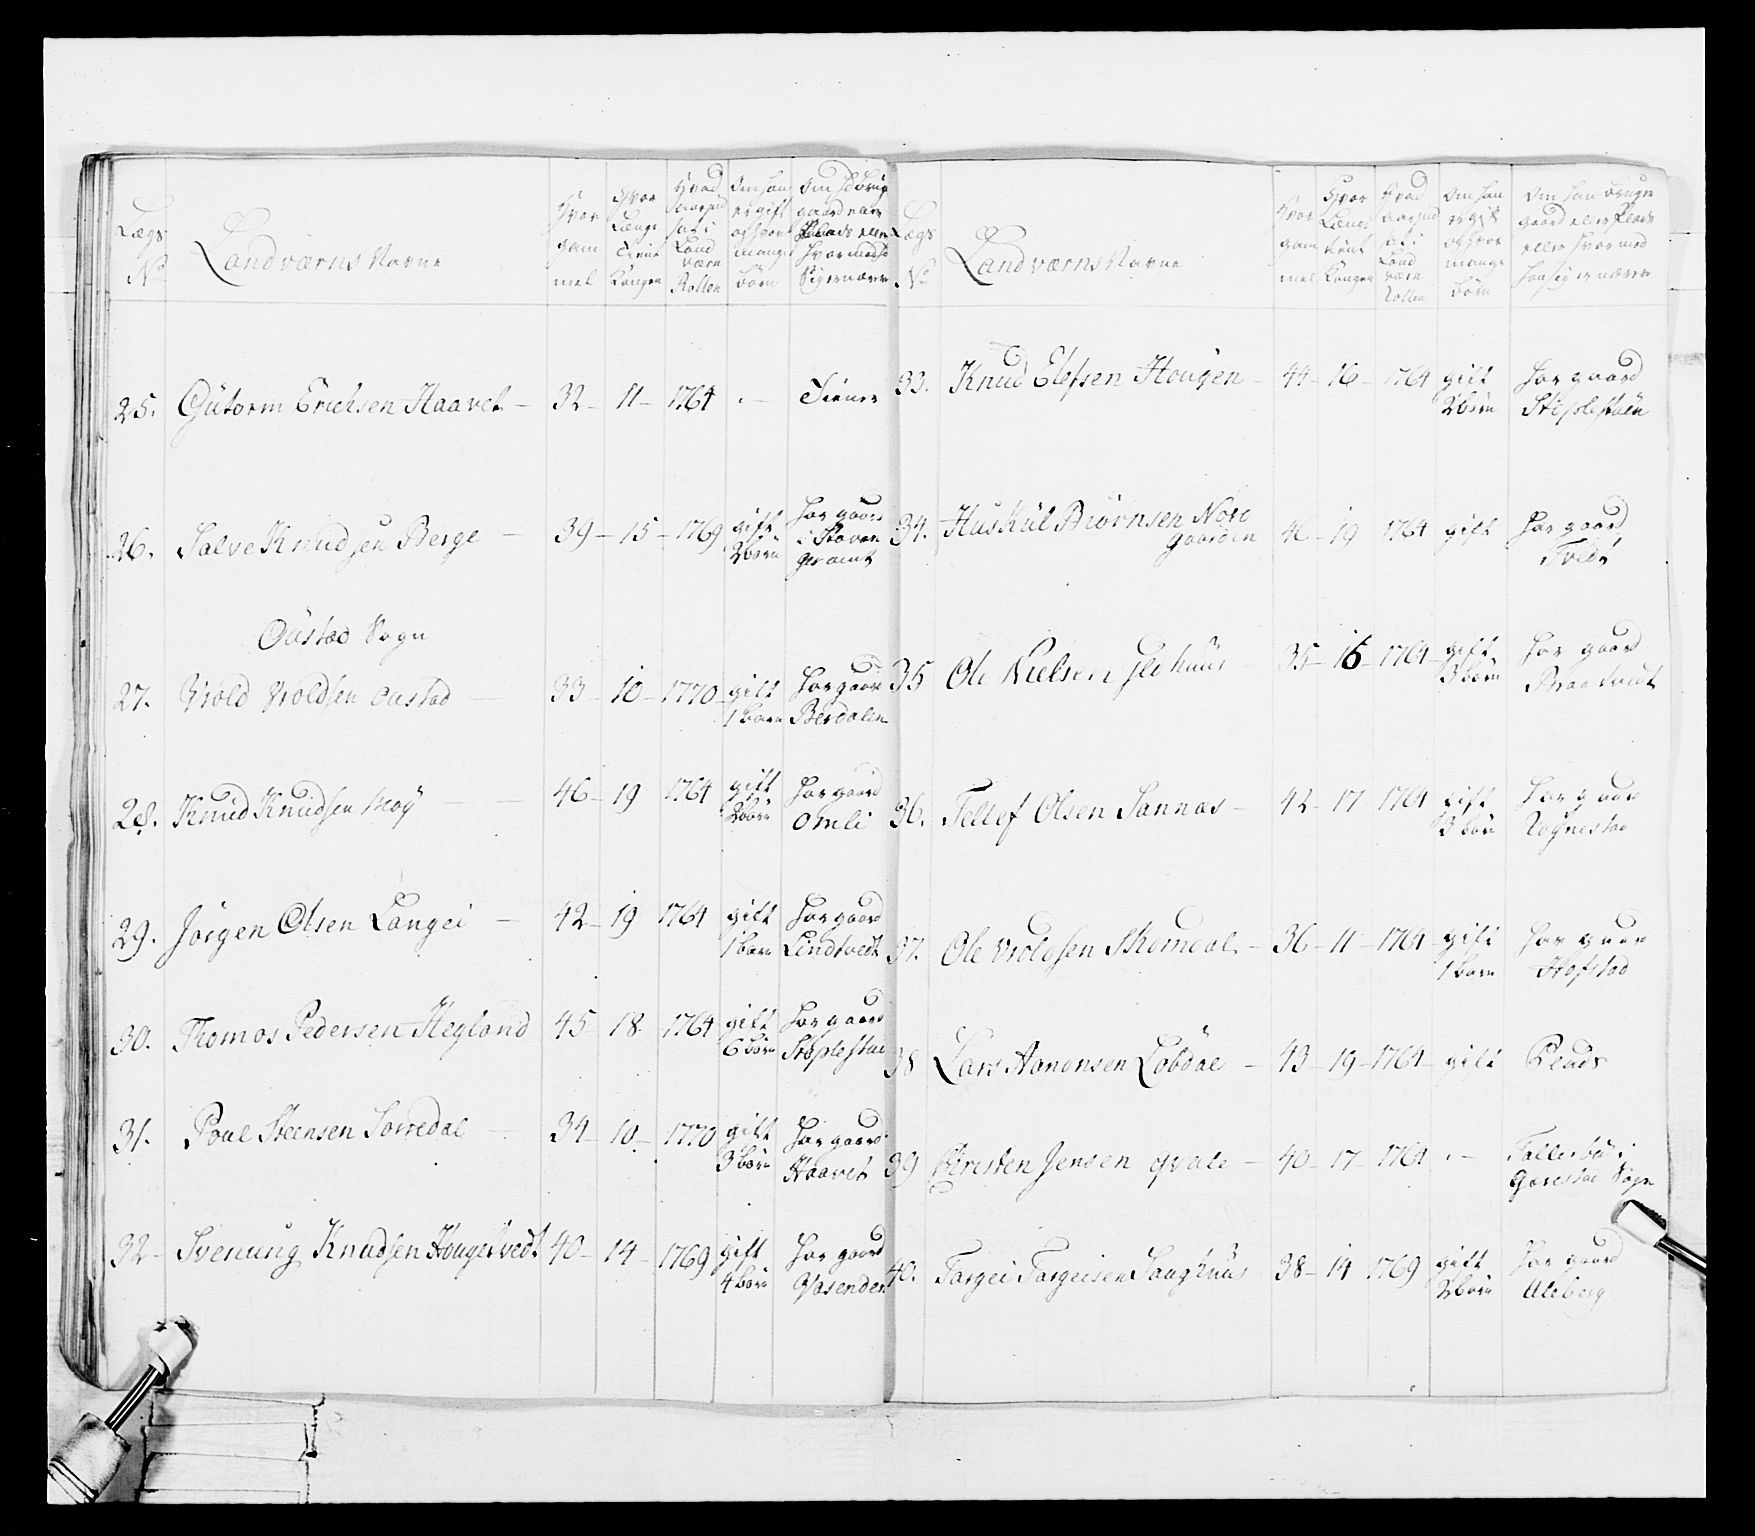 Lægs No
Landværns Navne
Hvor gam mel
Hvor Længe Tient Kongen
Hvad Aar ind sat i Land værn Rollen
Om han er gift og hvor mange børn
Om han brüger gaard eller Plads eller hvor med Sig ernærer
25. Gütorm Erichsen Haavet – 32 – 11 – 1764 . — Tiener
26. Salve Knudsen Berge – 39 – 15 – 1769 gift 2 børn har gaard i Stavan ger amt
Oustad Sogn
27. Vrold Vroldsen Oustad — 33 – 10 – 1770 – gift 1 barn har gaard Berdalen
28. Knud Knudsen Moÿ — 46 – 19 1764 gift 2 børn har gaard Omli
29. Jørgen Olsen Langei — 42 – 19 1764 gift 1 barn har gaard Lindtvedt
30. Thomas Pedersen Hegland 45 – 18 1764 gift 6 børn har gaard Støplestad
31. Poul Steensen Sorredal – 34 – 10 – 1770 gift 3 børn har gaard Haavet
32 – Svenung Knudsen Hougetvedt 40 – 14 – 1769 gift 4 børn har gaard Vasenden
Lægs No
Landværns Navne
Hvor gam mel
Hvor Længe tient Kongen
Hvad Aar ind sat i Land værn Rollen
Om han er gift og hvor mange børn
Om han bruger gaard eller Plads eller hvor med han sig ernærer
33. Knud Elefsen Hougen – 44 – 16 – 1764 gift 2 børn har gaard
34. Huskül Biørnsen Nore gaarden 46 – 19 1764 gift har gaard Tvedt
35 Ole Nielsen – 35 – 16 – 1764 – gift 3 børn har gaard
36. Tellef Olsen Sannæs – 42 – 17 1764 gift 3 børn har gaard Rognestad
37. Ole Vroldsen Skomedal – 36 – 11 – 1764 – gift 1 barn har gaard Hofstad
38 Lars Aanonsen Lobdal – 43 – 19 – 1764 – gift Plads
39 Christen Jensen qvale – 40 – 17 – 1764 . –
40. Targei Targeisen Saughuus 38 – 14 1769 gift 2 børn har gaard Uleberg